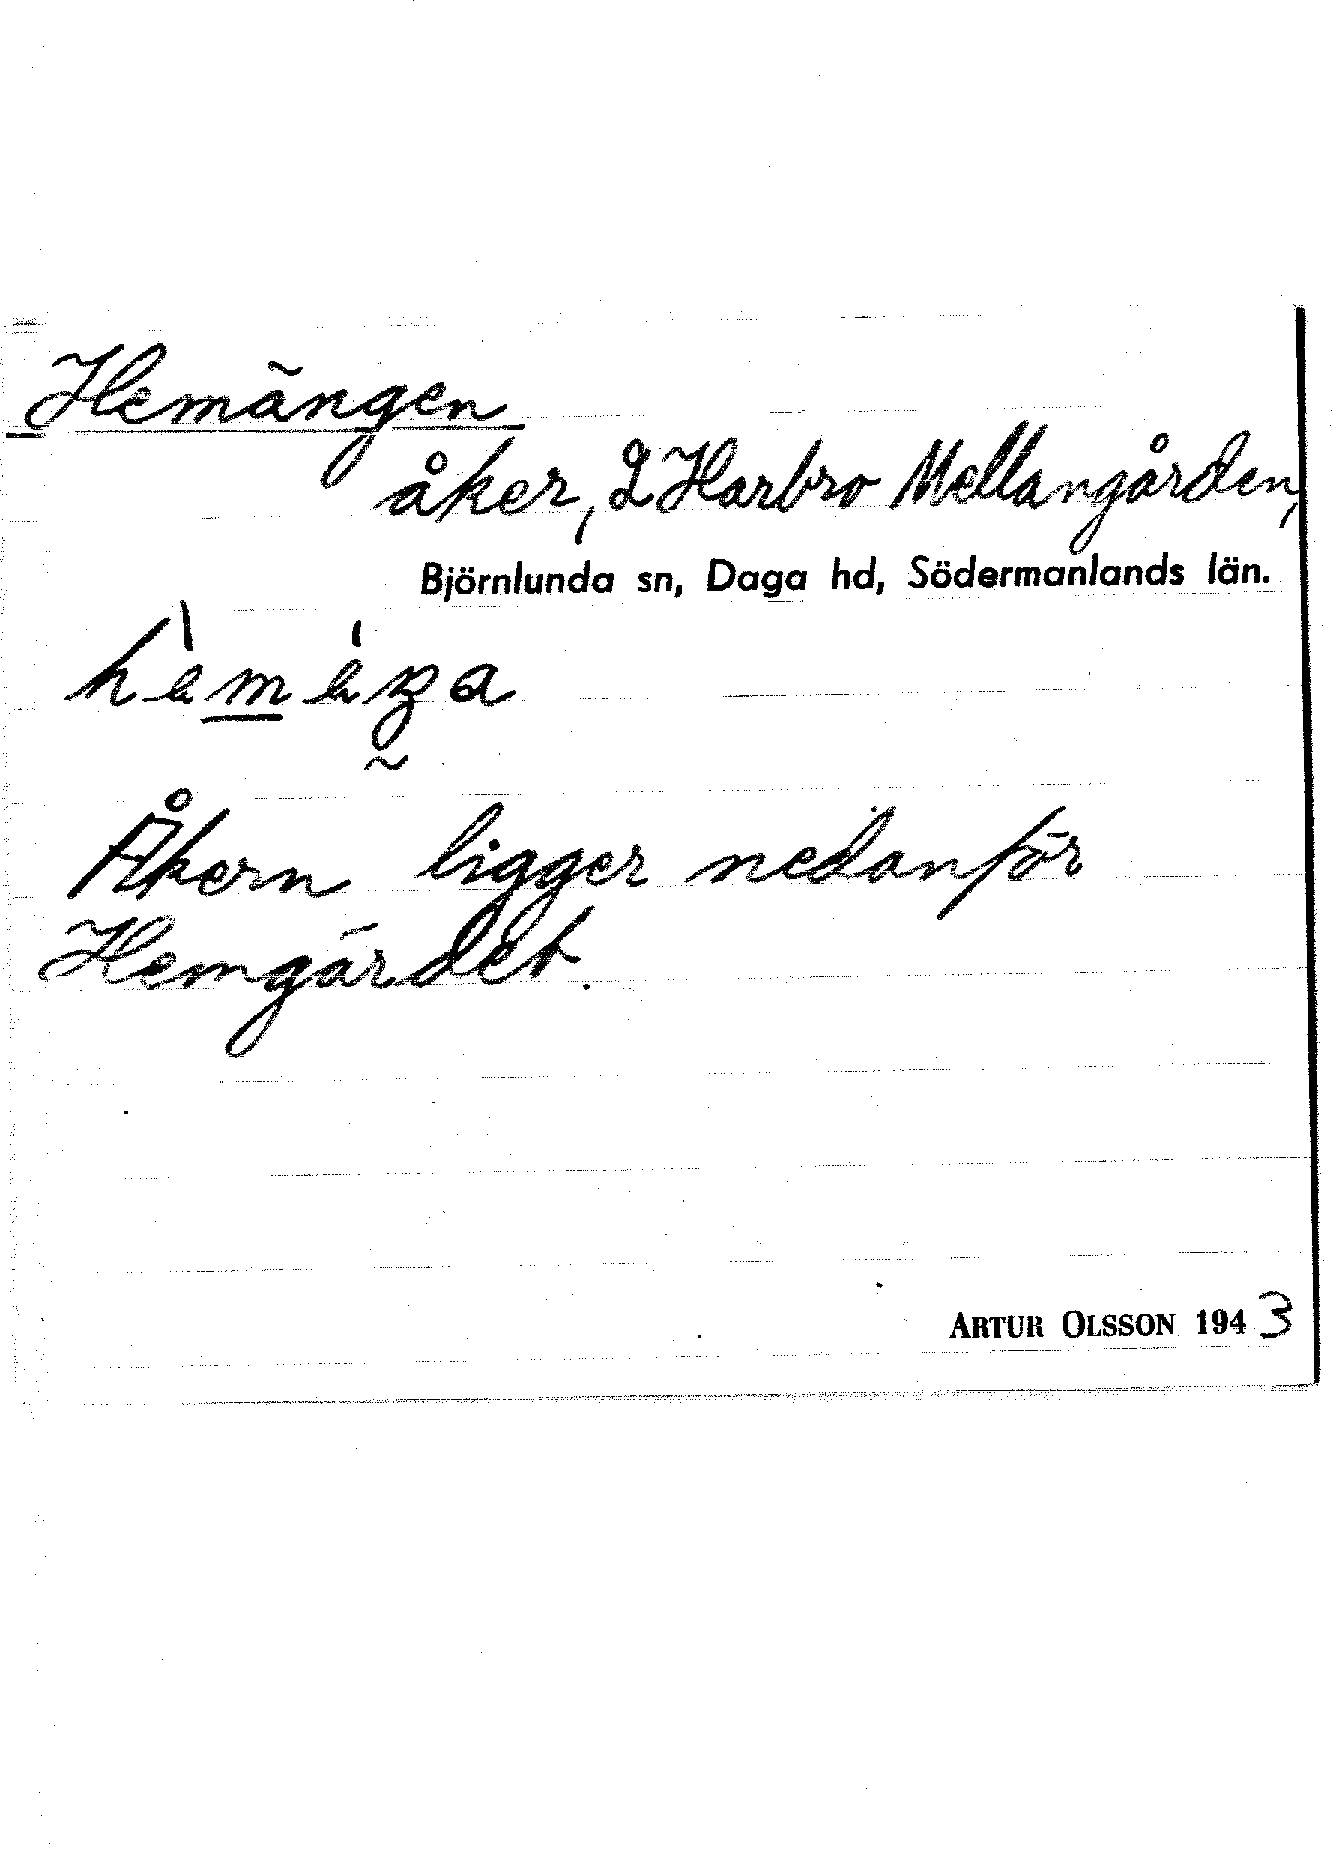 Hemängen
åker, 2 Harbro Mellangården,
Björnlunda sn, Daga hd, Södermanlands län.
Åkern ligger nedanför
Hemgärdet.
ARTUR OLSSON 1943